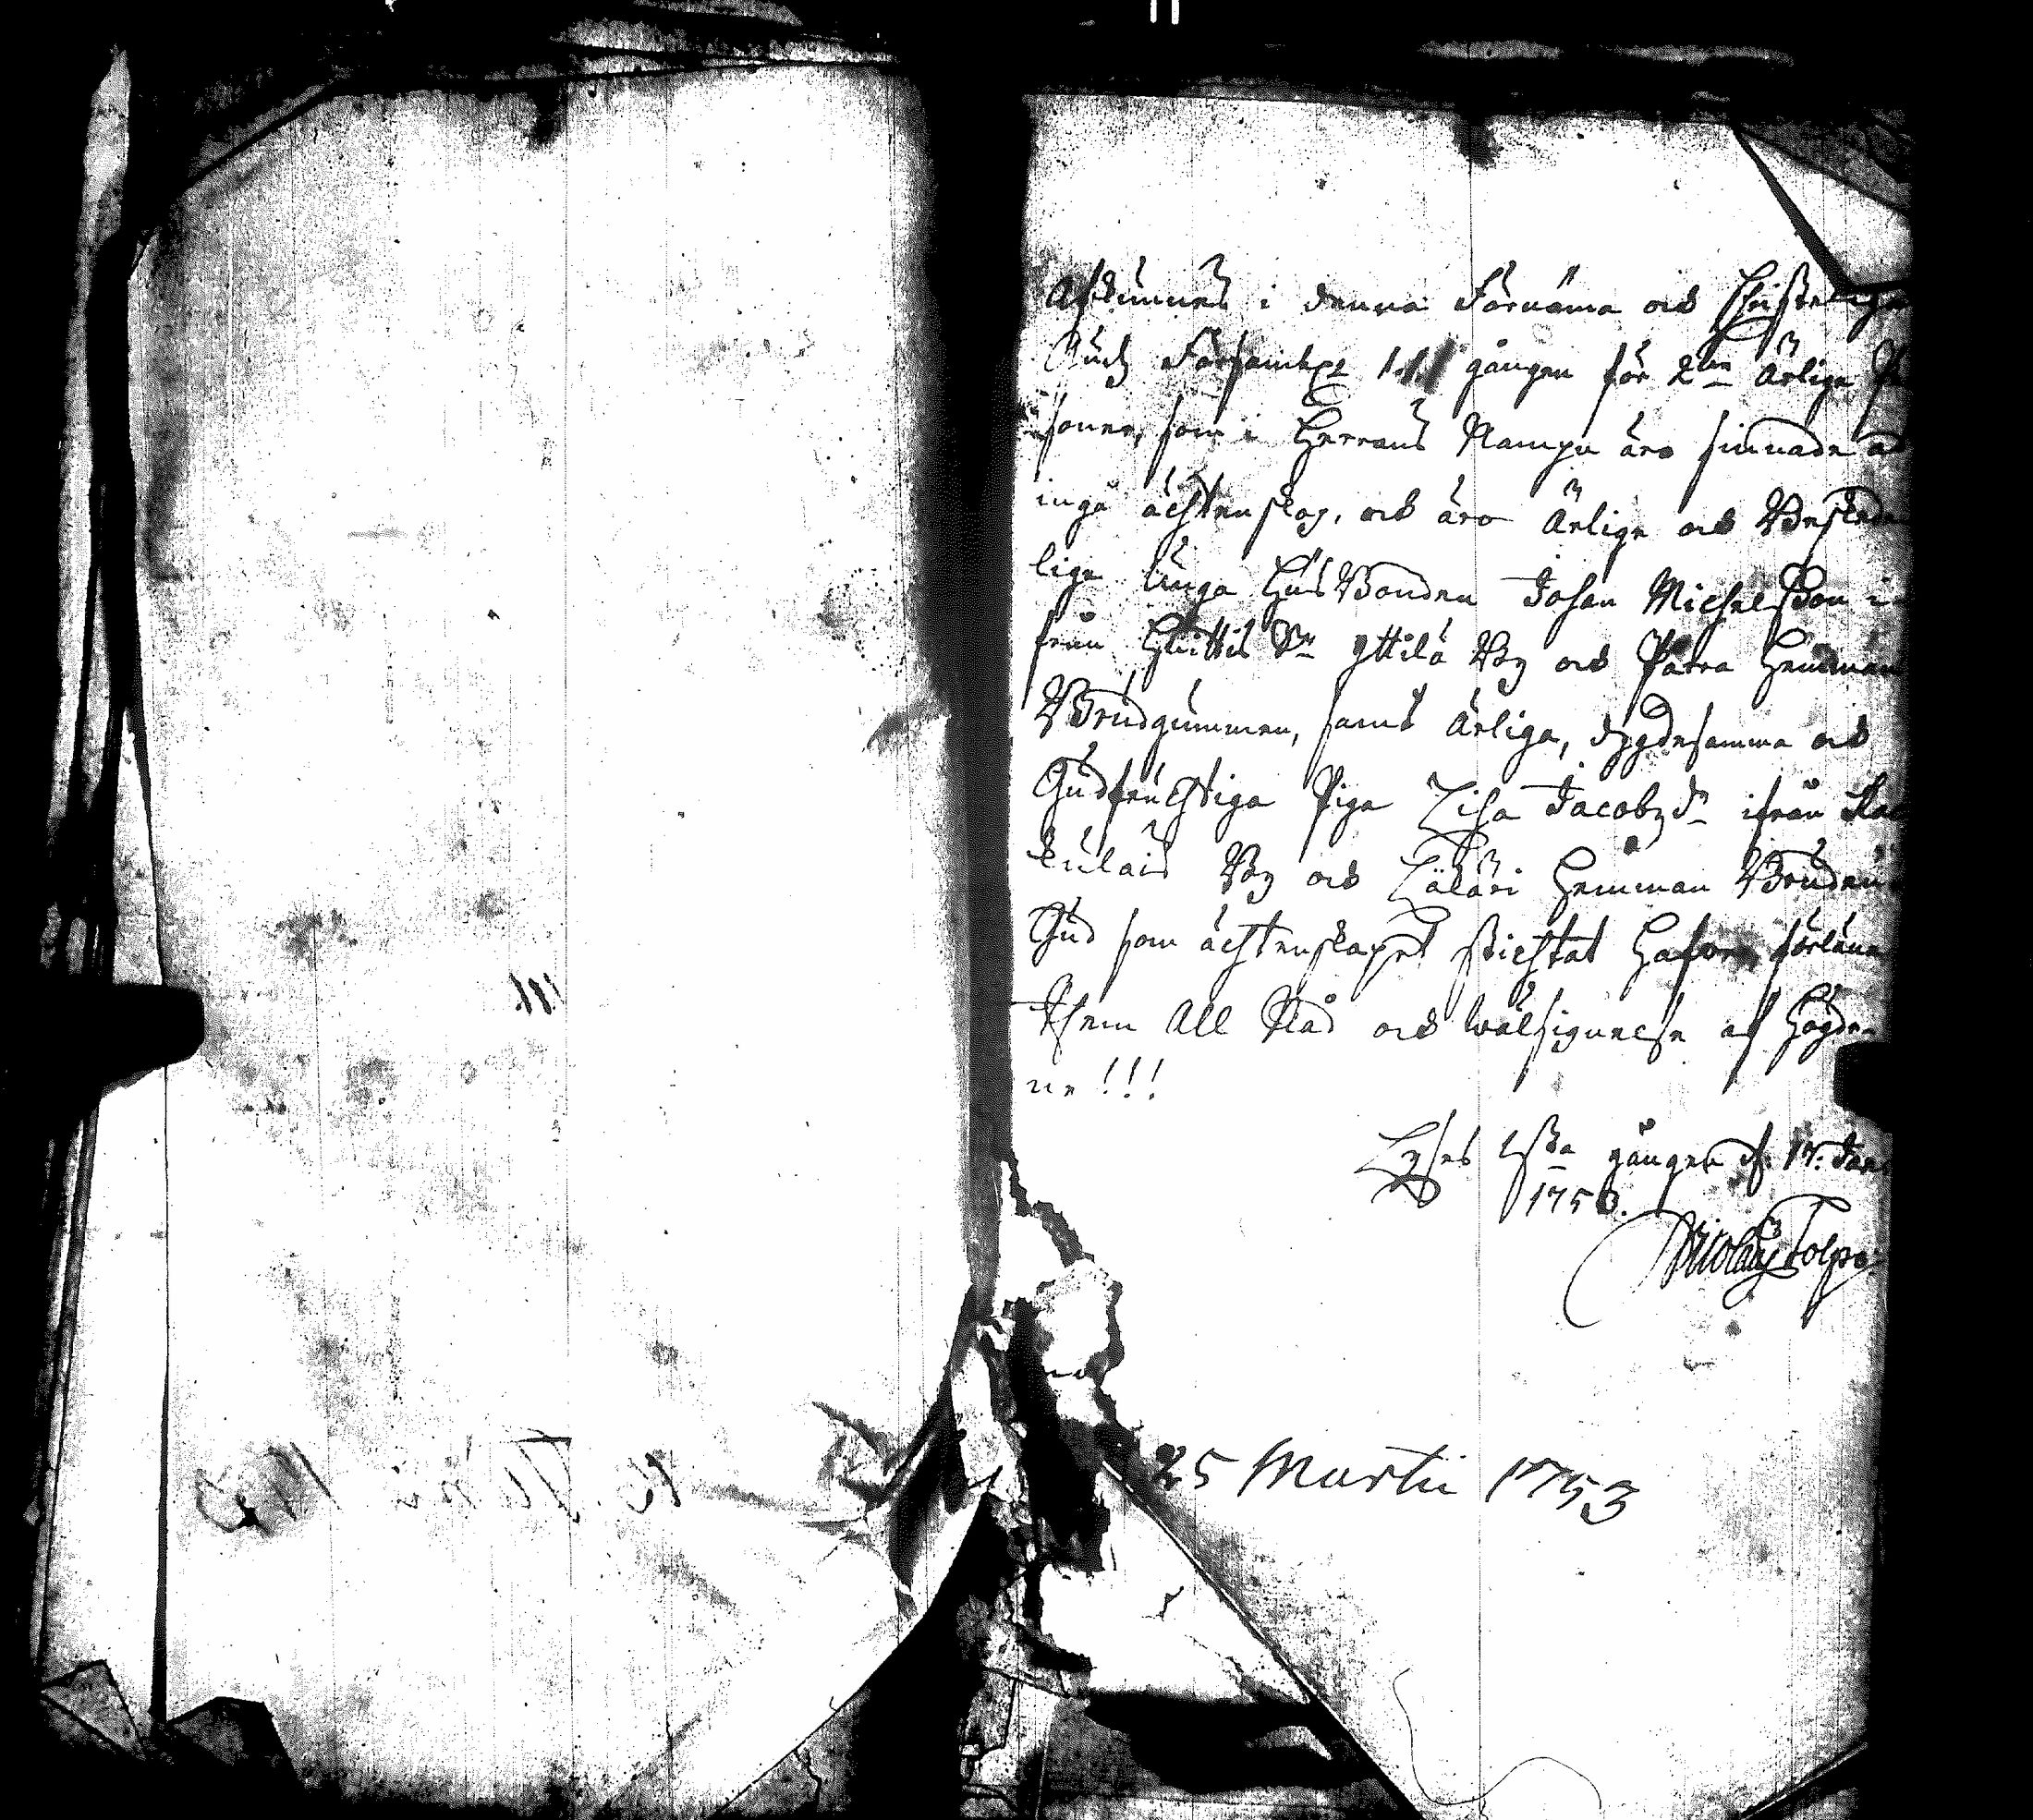 Afkunnes i denna Förnäma och Christelige
Gudz Församl: 1. gången för 2ne Ärlige Per
soner, som i Herrans Nampn äro sinnade at
ingå ächtenskap, och äro Ärlige och Beskede
lige Unga HusBonden Johan Michelsson i
från Huittis Sn Yttilä By och Pärra Hemman
Brudgummen, samt ärliga, dygdesamma och
Gudfruchtiga Piga Lisa Jacobzdr ifrån Kac
kulais By och Läläri Hemman Bruden.
Gud som ächtenskapet stichtat Hafer förläne
Them All Nåd och wälsignelse af Högde-
ne!!!
Lyses 1sta gången d. 14. Jan.
1753.
Nicolaus Polpo
25 Martii 1753